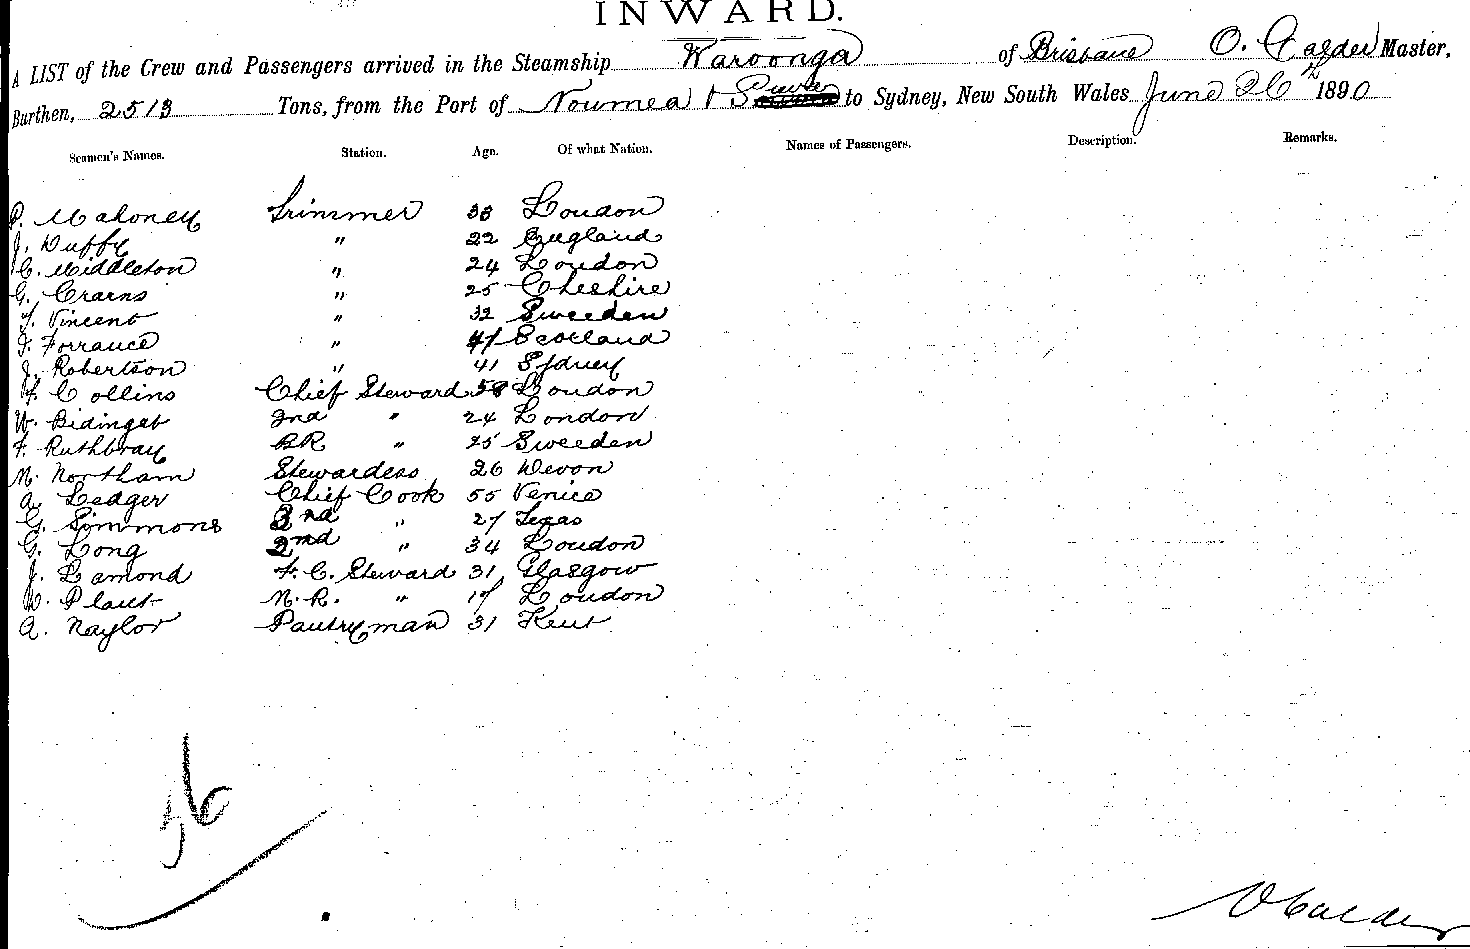 INWARD.
A LIST of the Crew and Passengers arrived in the Steamship Waroonga of Brisbane O. Calder Master,
Burthen, 2513 Tons, from the Port of Noumea & Suva to Sydney, New South Wales June 26th 1890
Seamen's Names. Station. Age. Of what Nation. Names of Passengers. Description. Remarks.
P. Mahoney Trimmer 38 London
J. Duffy " 22 England
C. Middleton " 24 London
G. Crarns " 25 Cheshire
T. Vincent " 32 Sweeden
F. Torrance " 41 Scotland
J. Robertson " 41 Sydney
Collins Chief Steward 58 London
W. Bidinget 2nd " 24 London
F. Ruthbray BR " 25 Sweeden
M. Northam Stewardess 26 Devon
A. Ledger Chief Cook 55 Venice
G. Simmons 3rd " 27 Texas
G. Long 2nd " 34 London
J. Lamond F. C. Steward 31 Glasgow
W. Plant M. R. " 17 London
A. Naylor Pantryman 31 Kent
56
O Calder